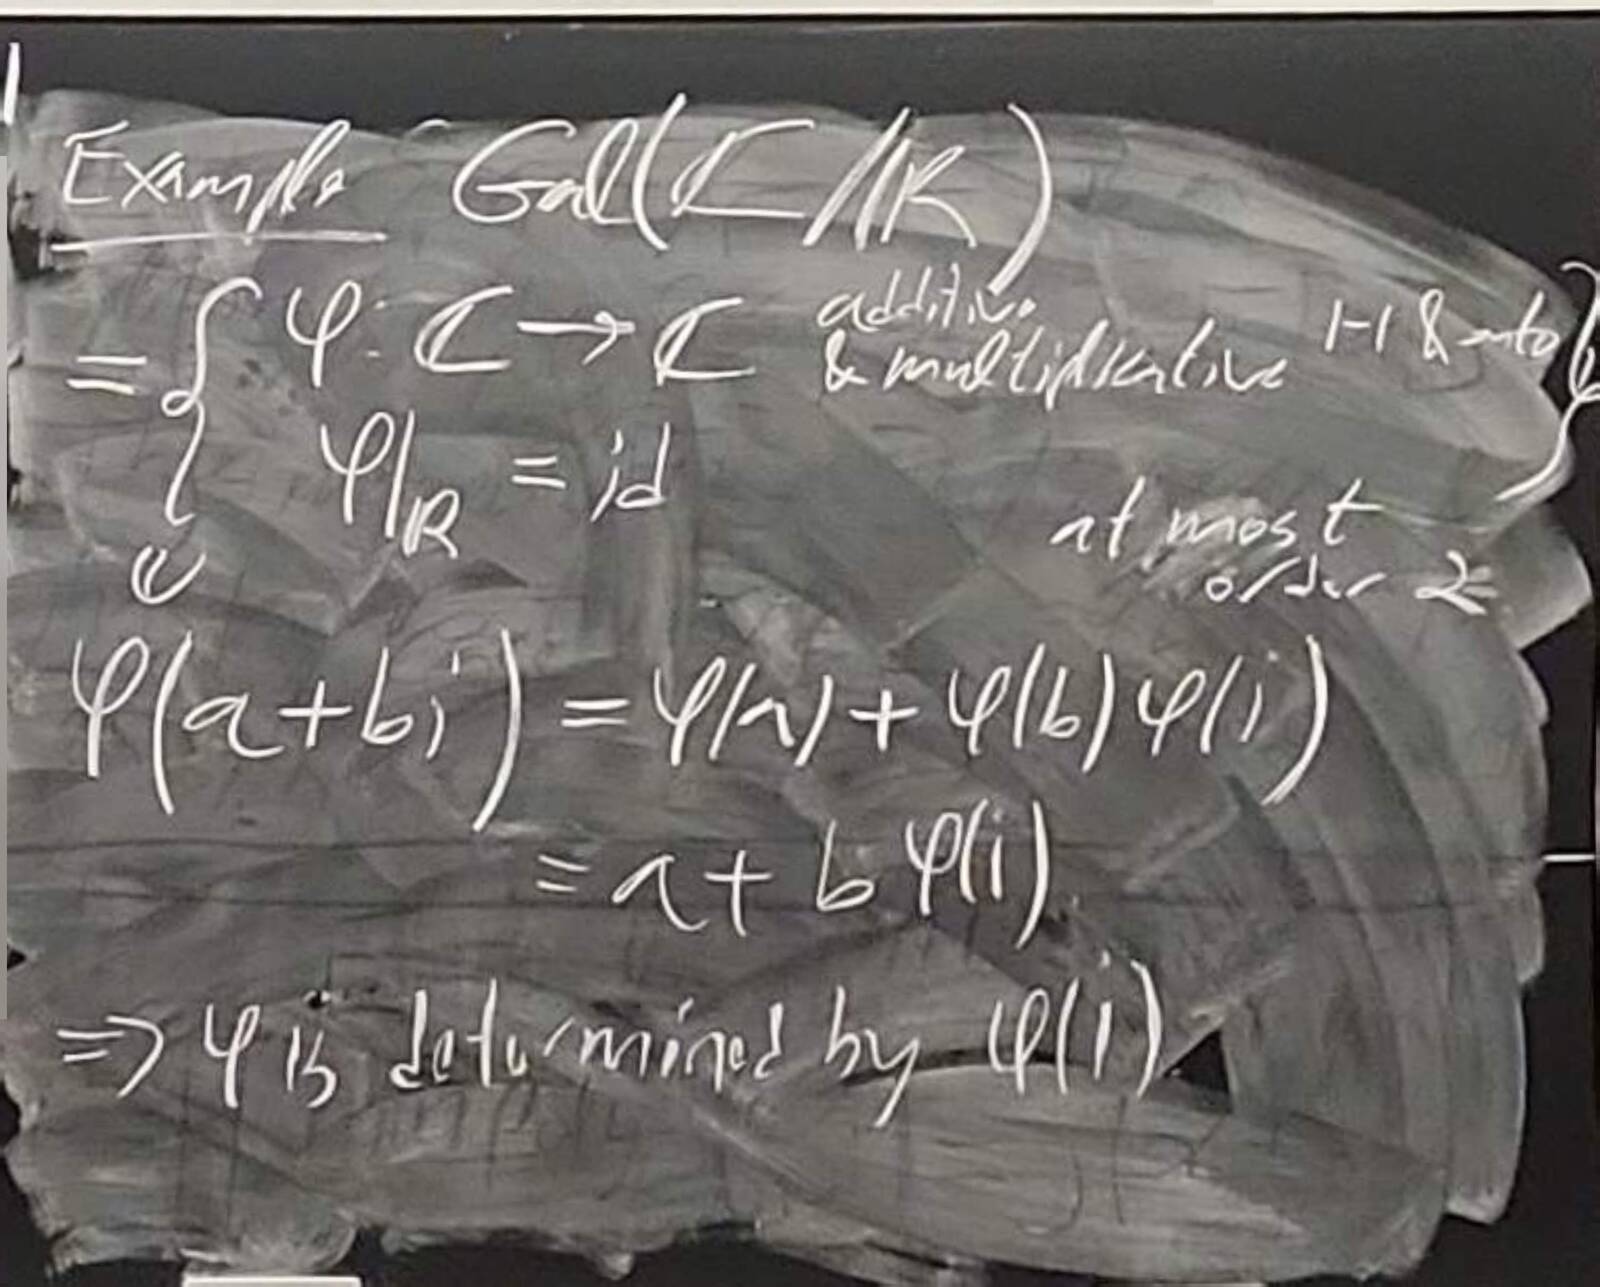 Example Gal(ℂ/ℝ)
= { φ: ℂ → ℂ additive & multiplicative 1-1 & onto }
φ|ℝ = id
at most order 2
φ(a+bi) = φ(a) + φ(b) φ(i)
= a + b φ(i)
⇒ φ is determined by φ(i)